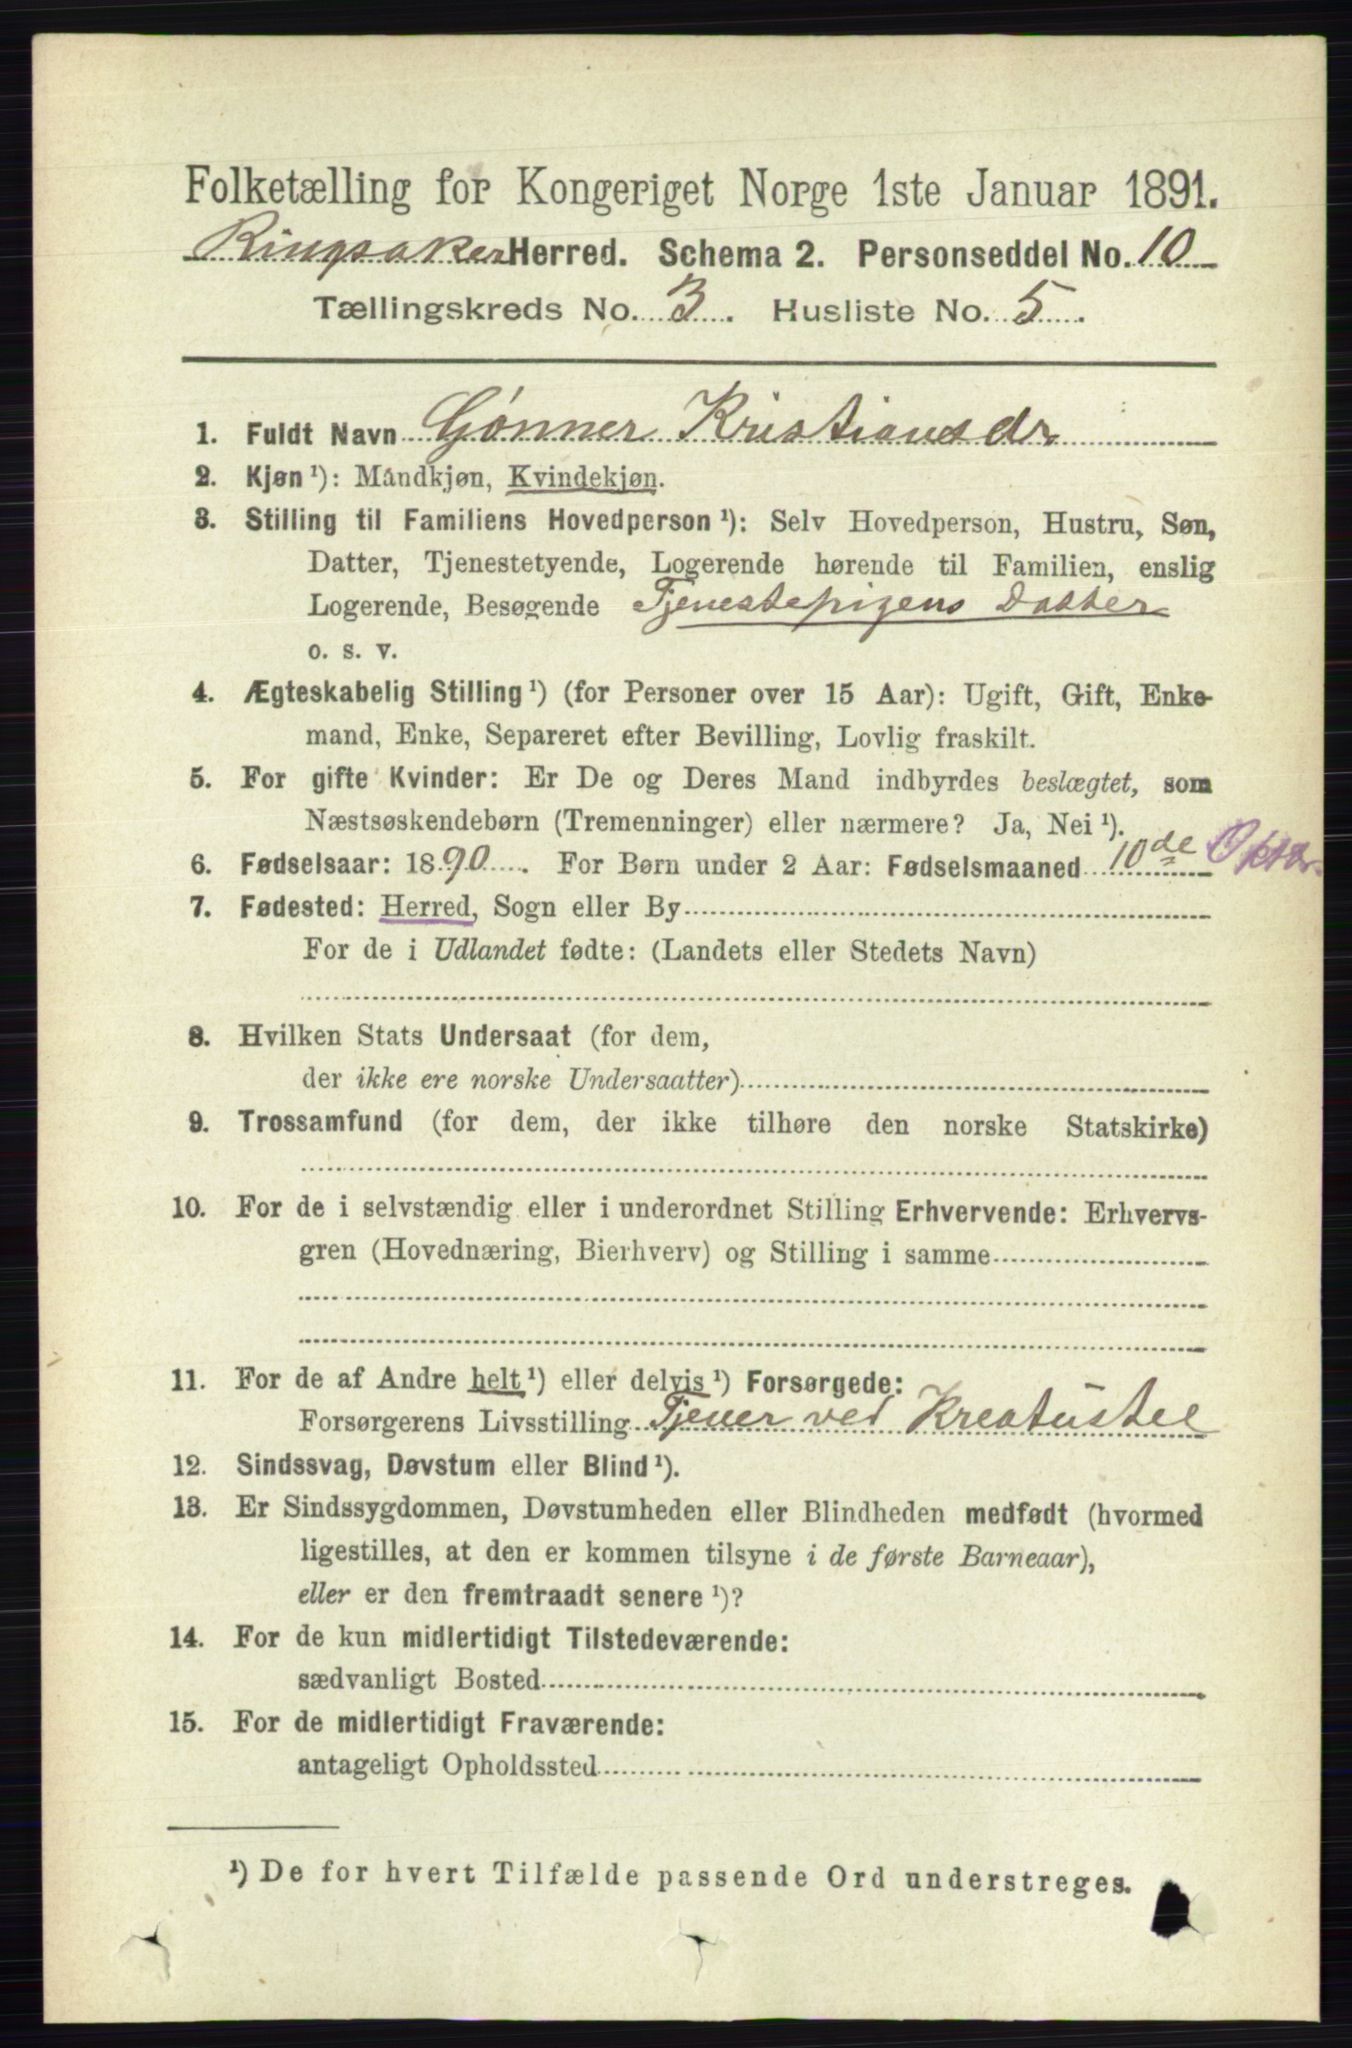 Folketælling for Kongeriget Norge 1ste Januar 1891.
Ringsaker Herred. Schema 2. Personseddel No. 10
Tællingskreds No. 3. Husliste No. 5.
1. Fuldt Navn Gønner Kristiansdr
2. Kjøn ¹): Mandkjøn, Kvindekjøn.
3. Stilling til Familiens Hovedperson ¹): Selv Hovedperson, Hustru, Søn,
Datter, Tjenestetyende, Logerende hørende til Familien, enslig
Logerende, Besøgende Tjenestepigens Datter
o. s. v.
4. Ægteskabelig Stilling ¹) (for Personer over 15 Aar): Ugift, Gift, Enke-
mand, Enke, Separeret efter Bevilling, Lovlig fraskilt.
5. For gifte Kvinder: Er De og Deres Mand indbyrdes beslægtet, som
Næstsøskendebørn (Tremenninger) eller nærmere? Ja, Nei ¹).
6. Fødselsaar: 1890. For Børn under 2 Aar: Fødselsmaaned 10de Oktbr.
7. Fødested: Herred, Sogn eller By
For de i Udlandet fødte: (Landets eller Stedets Navn)
8. Hvilken Stats Undersaat (for dem,
der ikke ere norske Undersaatter)
9. Trossamfund (for dem, der ikke tilhøre den norske Statskirke)
10. For de i selvstændig eller i underordnet Stilling Erhvervende: Erhvervs-
gren (Hovednæring, Bierhverv) og Stilling i samme
11. For de af Andre helt ¹) eller delvis ¹) Forsørgede:
Forsørgerens Livsstilling Tjener ved Kreatustel
12. Sindssvag, Døvstum eller Blind ¹).
13. Er Sindssygdommen, Døvstumheden eller Blindheden medfødt (hvormed
ligestilles, at den er kommen tilsyne i de første Barneaar),
eller er den fremtraadt senere ¹)?
14. For de kun midlertidigt Tilstedeværende:
sædvanligt Bosted
15. For de midlertidigt Fraværende:
antageligt Opholdssted
¹) De for hvert Tilfælde passende Ord understreges.